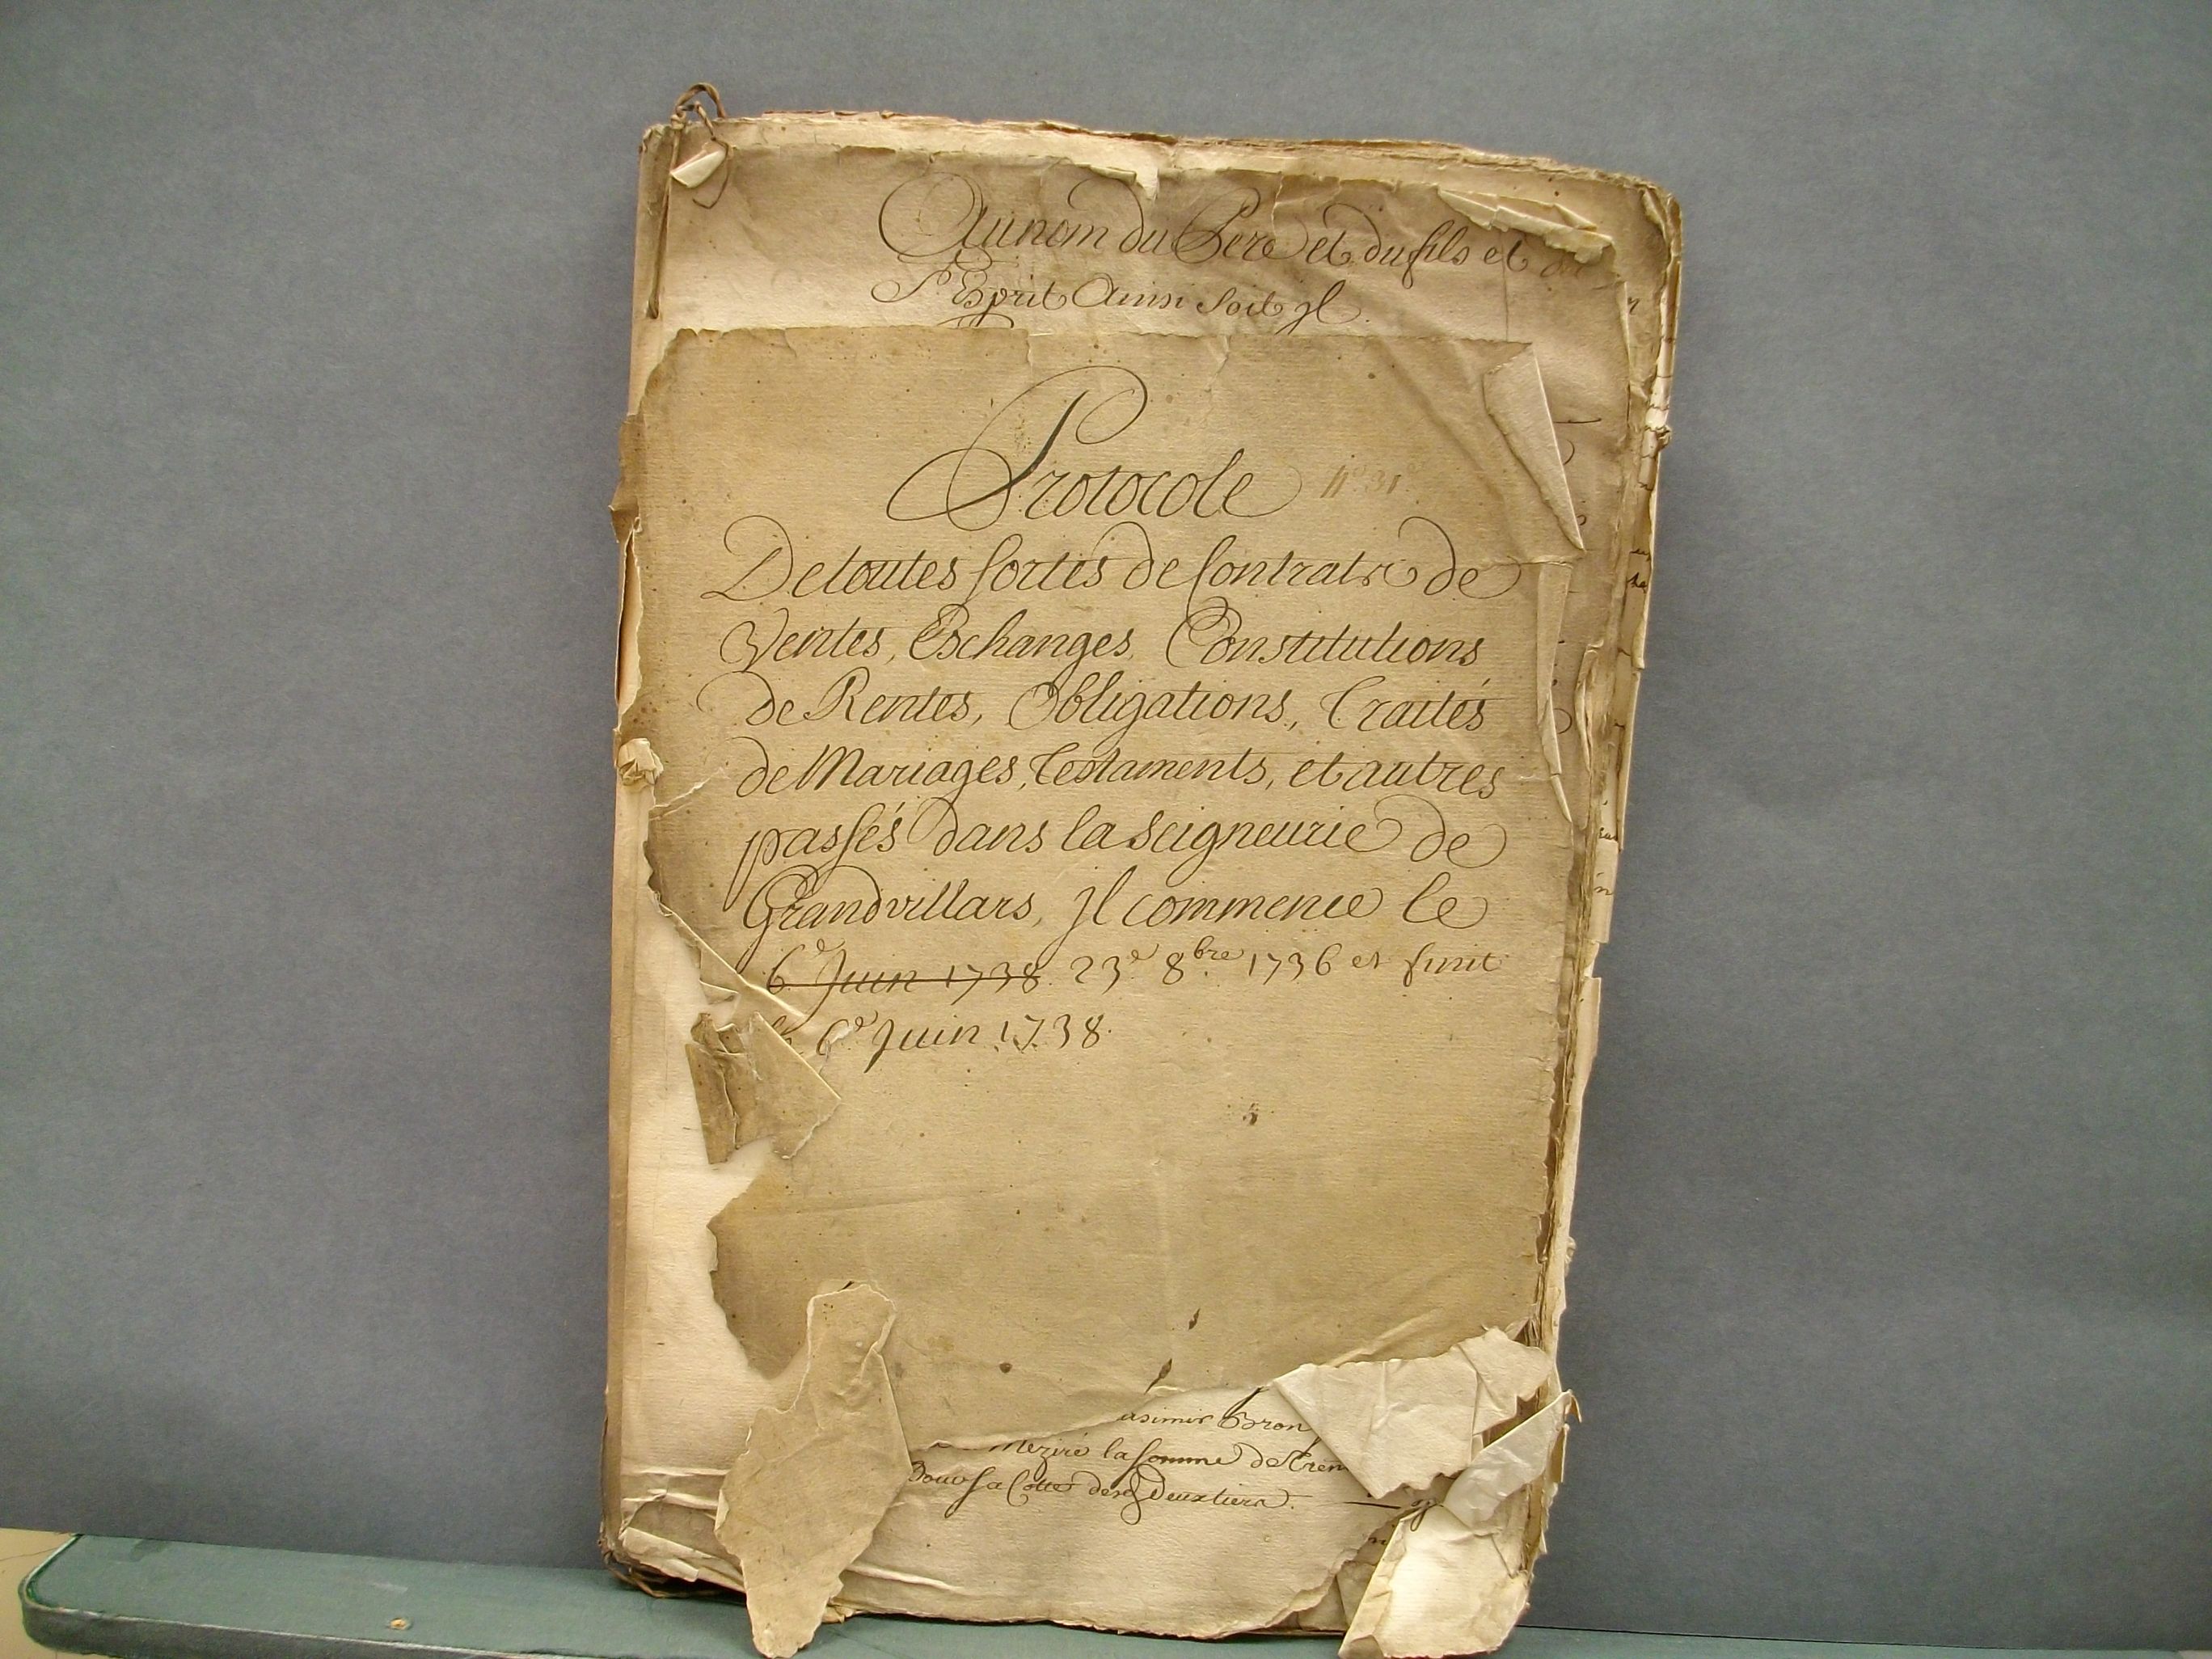 Au nom du Pere et du fils et du
St Esprit Ainsi soit jl.
Protocole n.º 31
De toutes sortes de Contrats de
Ventes, Eschanges, Constitutions
de Rentes, Obligations, Traités
de Mariages, Testaments, et autres
passés dans la seigneurie de
Grandvillars, jl commence le
6.e Juin 1738. 23.e 8.bre 1736 et finit
le 6.e Juin 1738.
asimir Bron
Meziré la somme de Tren
pour sa Cotte desd. Deux tiers.